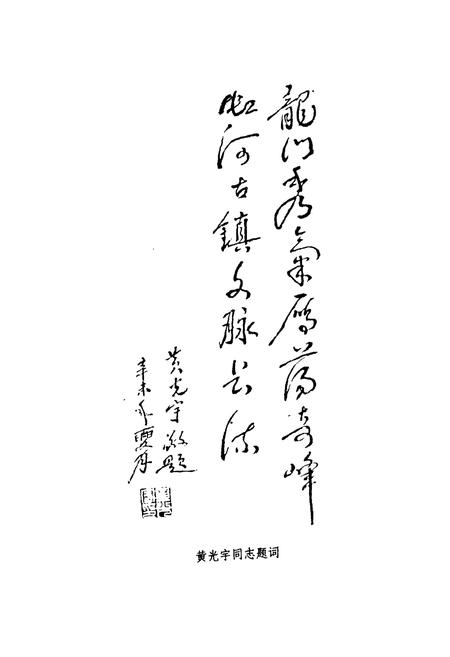 龍门秀氣雁蕩奇峰
虹河古鎮文脉长流
黄光宇敬題
辛未年夏月
黄光宇同志题词